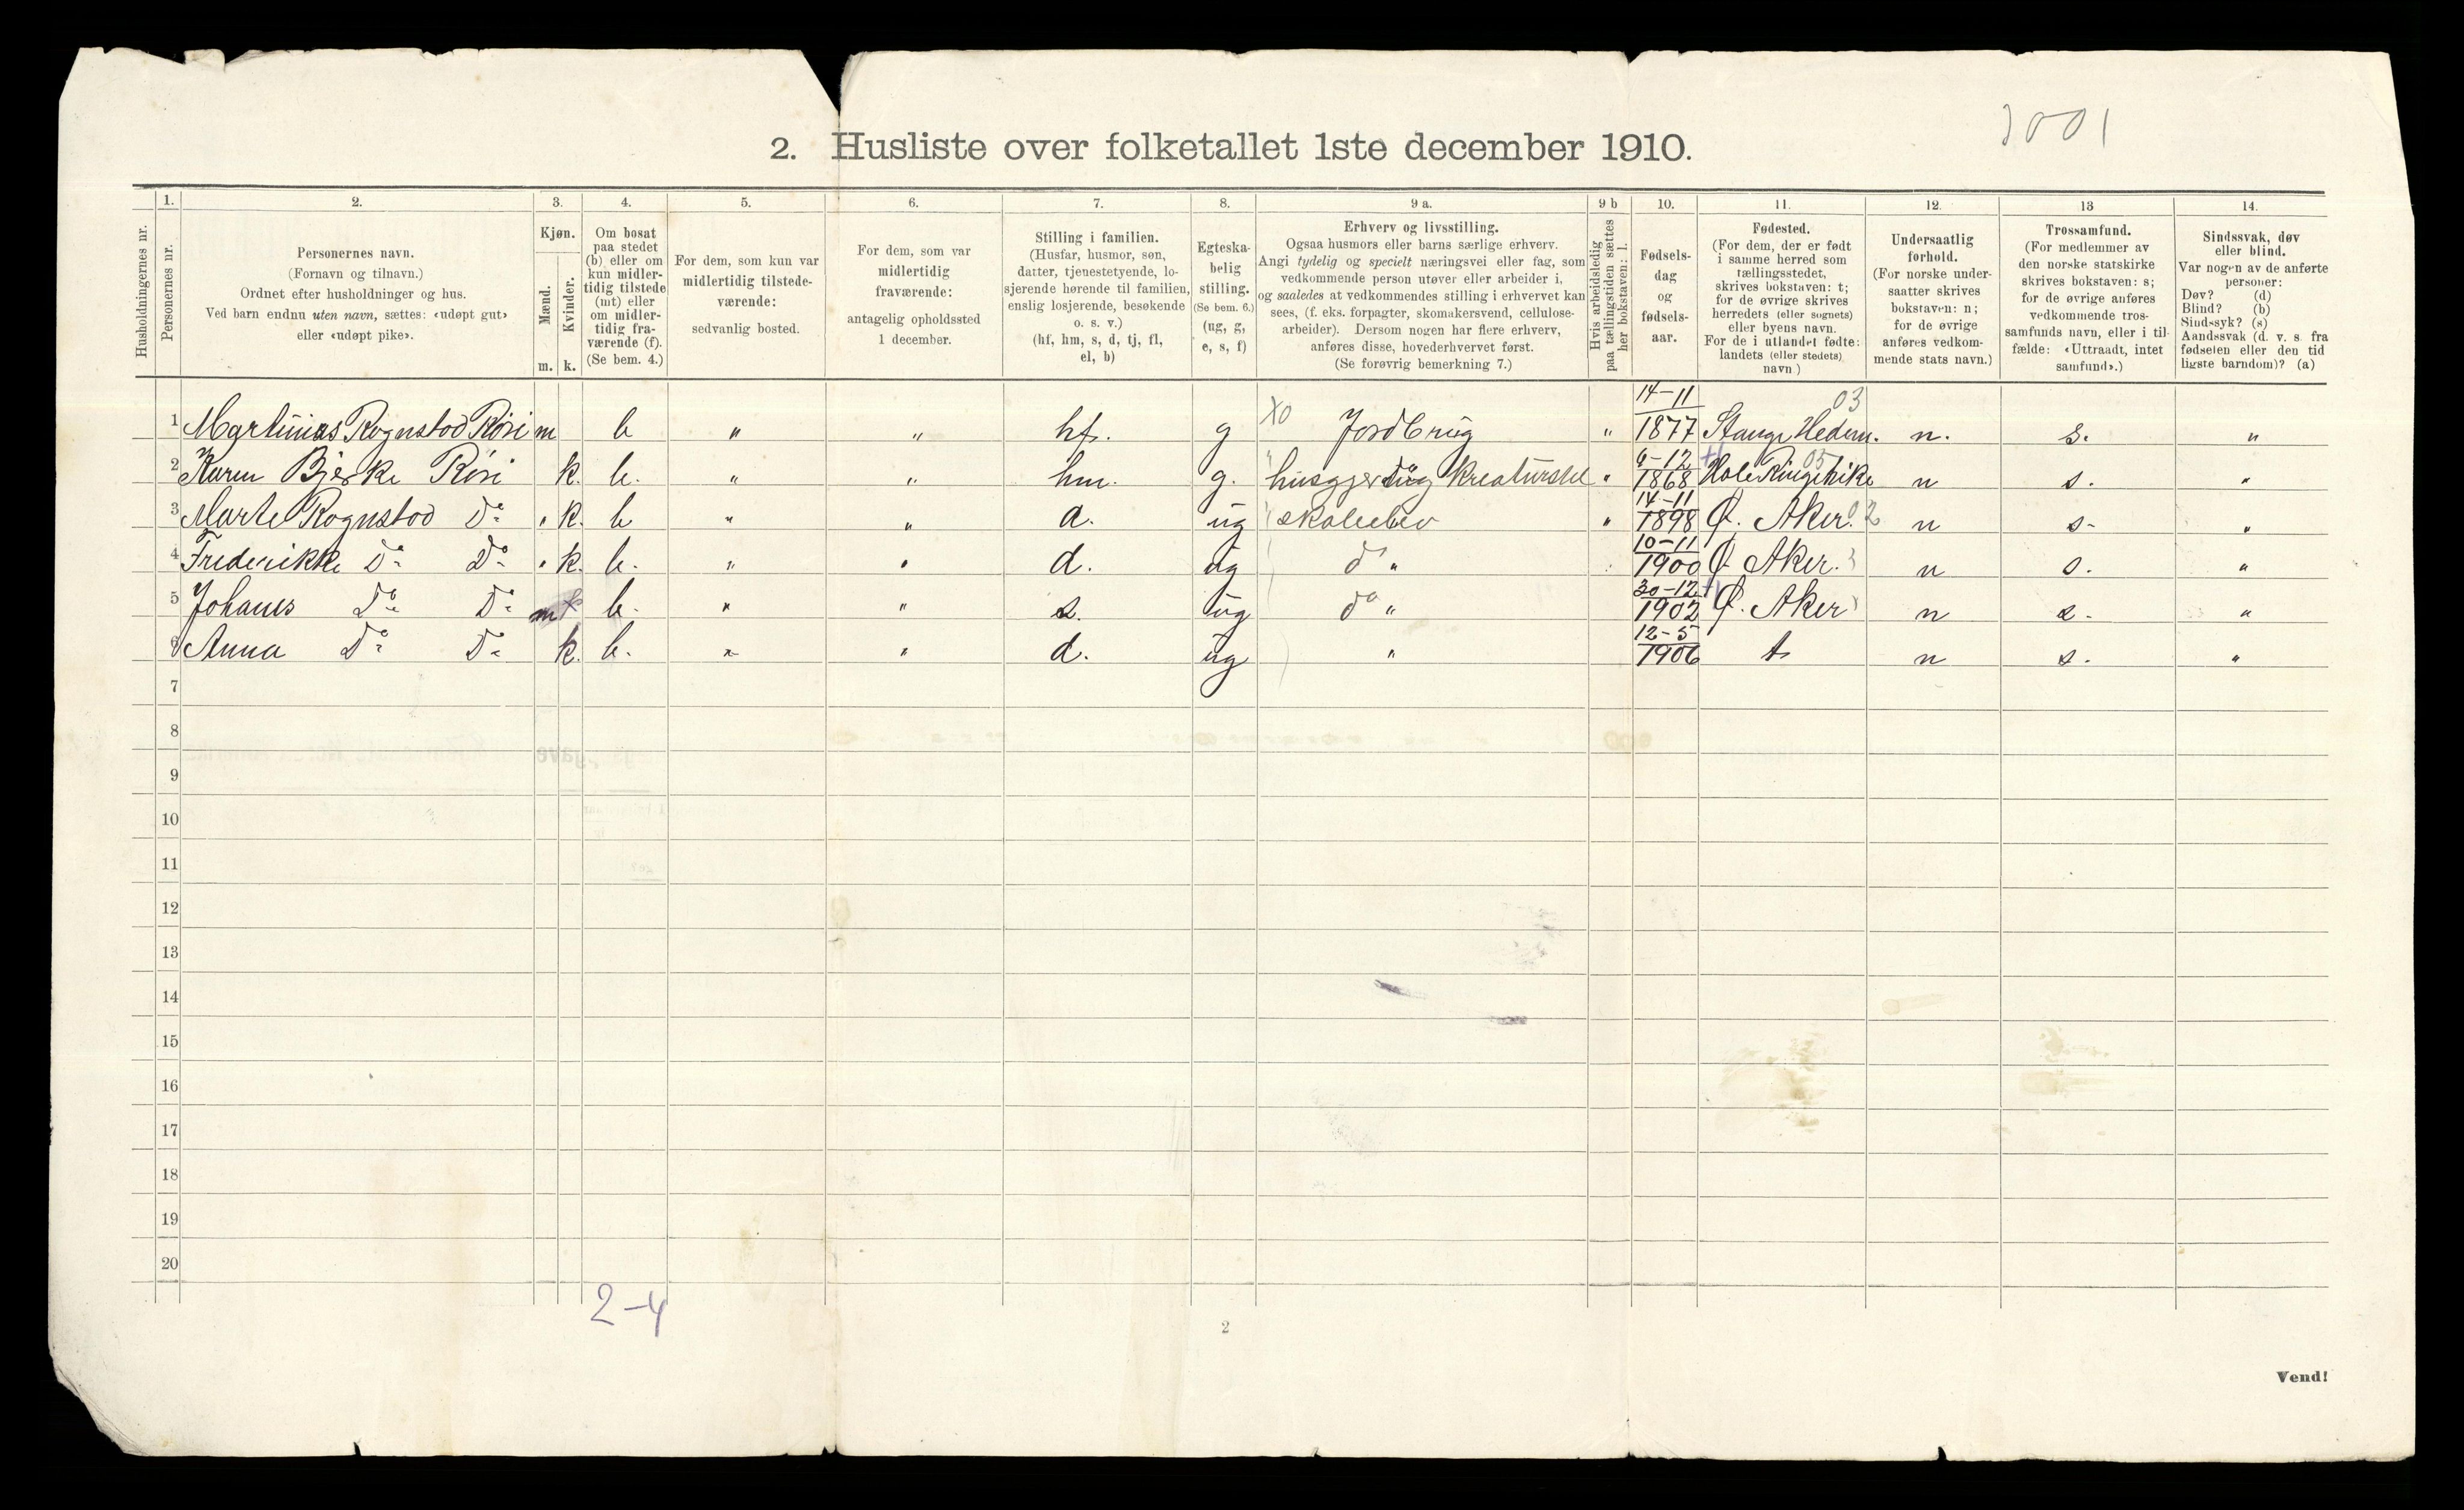 1001
2. Husliste over folketallet 1ste december 1910.
Husholdningernes nr.
1. Personernes nr.
2. Personernes navn.
(Fornavn og tilnavn.)
Ordnet efter husholdninger og hus.
Ved barn endnu uten navn, sættes: «udøpt gut»
eller «udøpt pike».
3. Kjøn.
Mænd. m.
Kvinder. k.
4. Om bosat
paa stedet
(b) eller om
kun midler-
tidig tilstede
(mt) eller
om midler-
tidig fra-
værende (f).
(Se bem. 4.)
5. For dem, som kun var
midlertidig tilstede-
værende:
sedvanlig bosted.
6. For dem, som var
midlertidig
fraværende:
antagelig opholdssted
1 december.
7. Stilling i familien.
(Husfar, husmor, søn,
datter, tjenestetyende, lo-
sjerende hørende til familien,
enslig losjerende, besøkende
o. s. v.)
(hf, hm, s, d, tj, fl,
el, b)
8. Egteska-
belig
stilling.
(Se bem. 6.)
(ug, g,
e, s, f)
9 a. Erhverv og livsstilling.
Ogsaa husmors eller barns særlige erhverv.
Angi tydelig og specielt næringsvei eller fag, som
vedkommende person utøver eller arbeider i,
og saaledes at vedkommendes stilling i erhvervet kan
sees, (f. eks. forpagter, skomakersvend, cellulose-
arbeider). Dersom nogen har flere erhverv,
anføres disse, hovederhvervet først.
(Se forøvrig bemerkning 7.)
9 b Hvis arbeidsledig
paa tællingstiden sættes
her bokstaven: l.
10. Fødsels-
dag
og
fødsels-
aar.
11. Fødested.
(For dem, der er født
i samme herred som
tællingsstedet,
skrives bokstaven: t;
for de øvrige skrives
herredets (eller sognets)
eller byens navn.
For de i utlandet fødte:
landets (eller stedets)
navn)
12. Undersaatlig
forhold.
(For norske under-
saatter skrives
bokstaven: n;
for de øvrige
anføres vedkom-
mende stats navn.)
13 Trossamfund.
(For medlemmer av
den norske statskirke
skrives bokstaven: s;
for de øvrige anføres
vedkommende tros-
samfunds navn, eller i til-
fælde: «Uttraadt, intet
samfund».)
14. Sindssvak, døv
eller blind.
Var nogen av de anførte
personer:
Døv? (d)
Blind? (b)
Sindssyk? (s)
Aandssvak (d. v. s. fra
fødselen eller den tid
ligste barndom)? (a)
1 Martinius Rognstod Røsi m b " " hf. g X0 Jordbrug " 14-11 1877 Stange Hedem. 03 n. s. "
2 Karen Bjerke Røsi k. b. " " hm. g. husgjerdug kreaturstel " 6-12 1868 Hole Ringerike 05 n s. "
3 Marte Rognstod Do " k. b " " d. ug skoleelev " 14-11 1898 Ø. Aker. 02 n s- "
4 Frederikke Do Do " k. b. " " d. ug do " 10-11 1900 Ø Aker. n s. "
5 Johanes Do Do m b. " " s. ug do " 30-12 1902 Ø. Aker n s- "
6 Anna Do Do k. b. " " d. ug " 12-5 1906 t n s. "
7
8
9
10
11
12
13
14
15
16
17
18
19
20
2-4
2
Vend!